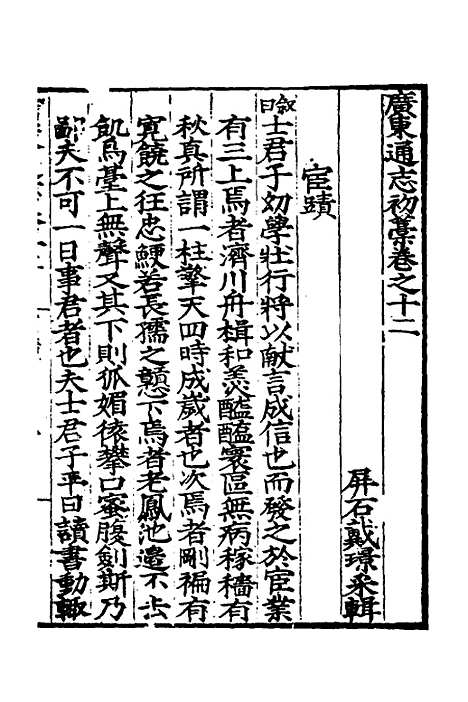 廣東通志初藁卷之十二
屏石戴璟采輯
宦蹟
敘曰士君子幼學壯行將以献言成信也而發之於宦業
有三上焉者濟川舟楫和羮醯醢寰區無病稼穡有
秋真所謂一柱擎天四時成歲者也次焉者剛褊有
寛饒之狂忠鯁若長孺之戇下焉者老鳳池邉不
飢烏臺上無聲又其下則狐媚猿攀口蜜腹劍斯乃
鄙夫不可一日事君者也夫士君子平日讀書動輙